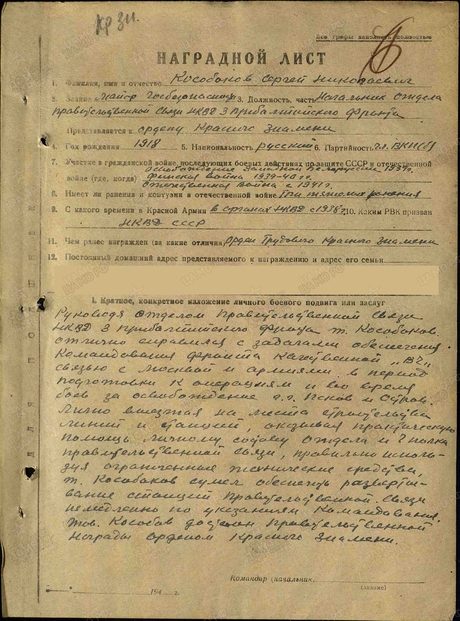 Кр Зн.
Все графы заполнять полностью
6
НАГРАДНОЙ ЛИСТ
1. Фамилия, имя и отчество Кособоков Сергей Николаевич
2. Звание майор Госбезопасности 3. Должность, часть Начальник отдела
правительственной связи НКВД 3 Прибалтийского фронта
Представляется к ордену Красного Знамени
4. Год рождения 1918 5. Национальность русский 6. Партийность чл. ВКП(б)
7. Участие в гражданской войне, последующих боевых действиях по защите СССР и отечественной
войне (где, когда) Освобождение Западной Белоруссии 1939г.
Финская война 1939-40 гг.
Отечественная война с 1941г.
8. Имеет ли ранения и контузии в отечественной войне Три тяжелых ранения
9. С какого времени в Красной Армии в органах НКВД с 1938г. 10. Каким РВК призван
НКВД СССР
11. Чем ранее награжден (за какие отличия) Орден Трудового Красного Знамени
12. Постоянный домашний адрес представляемого к награждению и адрес его семьи
I. Краткое, конкретное изложение личного боевого подвига или заслуг
Руководя отделом Правительственной Связи
НКВД 3 Прибалтийского фронта т. Кособоков
отлично справился с задачами обеспечения
Командования фронта качественной „ВЧ"
связью с Москвой и армиями в период
подготовки к операциям и во время
боев за освобождение г.г. Псков и Остров.
Лично выезжая на места строительства
линий и станций, оказывая практическую
помощь личному составу отдела и полка
правительственной связи, правильно исполь-
зуя ограниченные технические средства,
т. Кособоков сумел обеспечить развёрты-
вание станций Правительственной Связи
немедленно по указаниям Командования.
Тов. Кособов достоин Правительственной
Награды Орденом Красного Знамени.
Командир (начальник
194 г.
(звание)